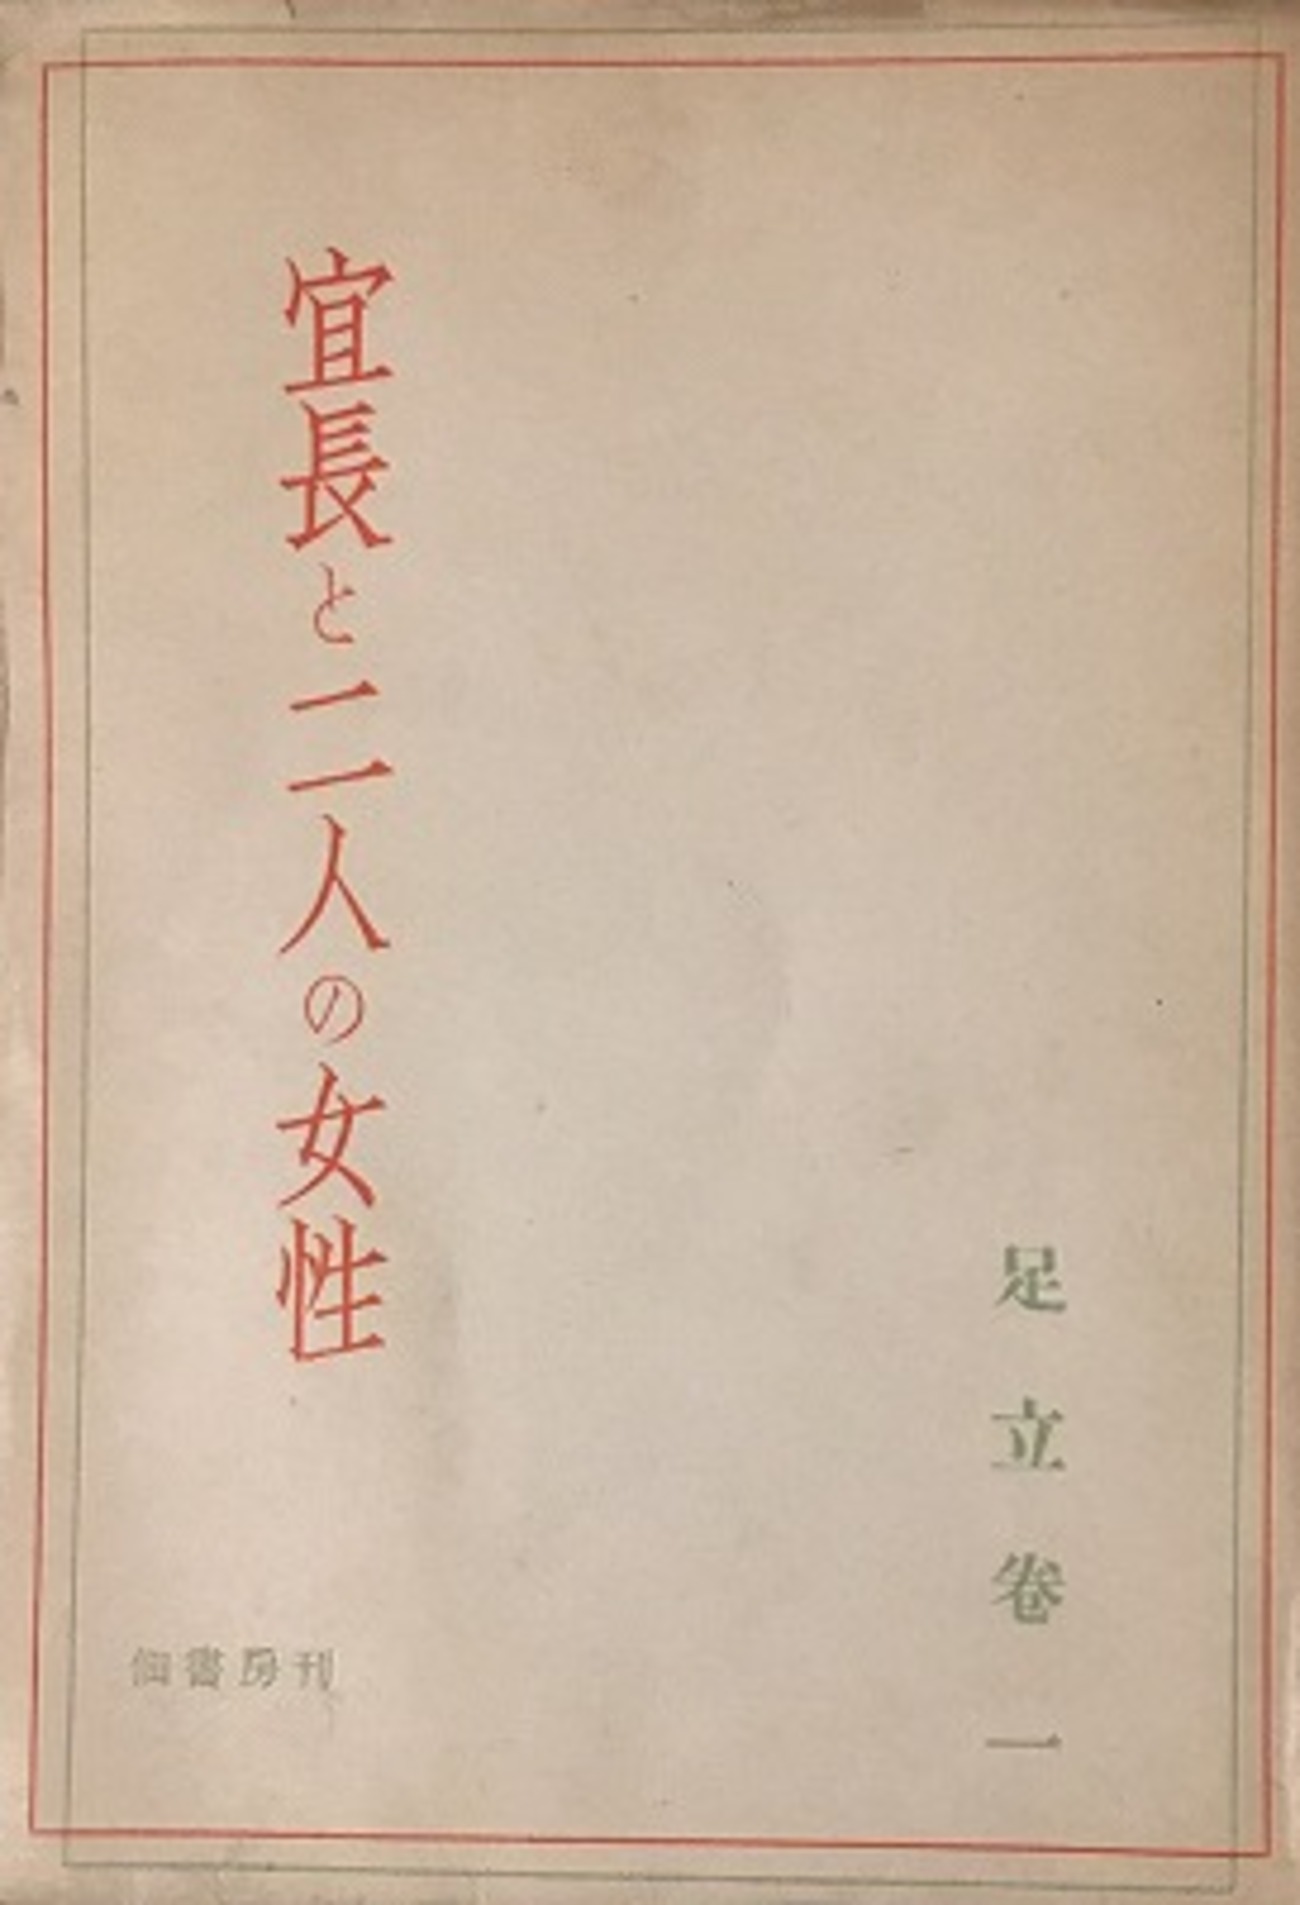 足立巻一
宣長と二人の女性
書房刊